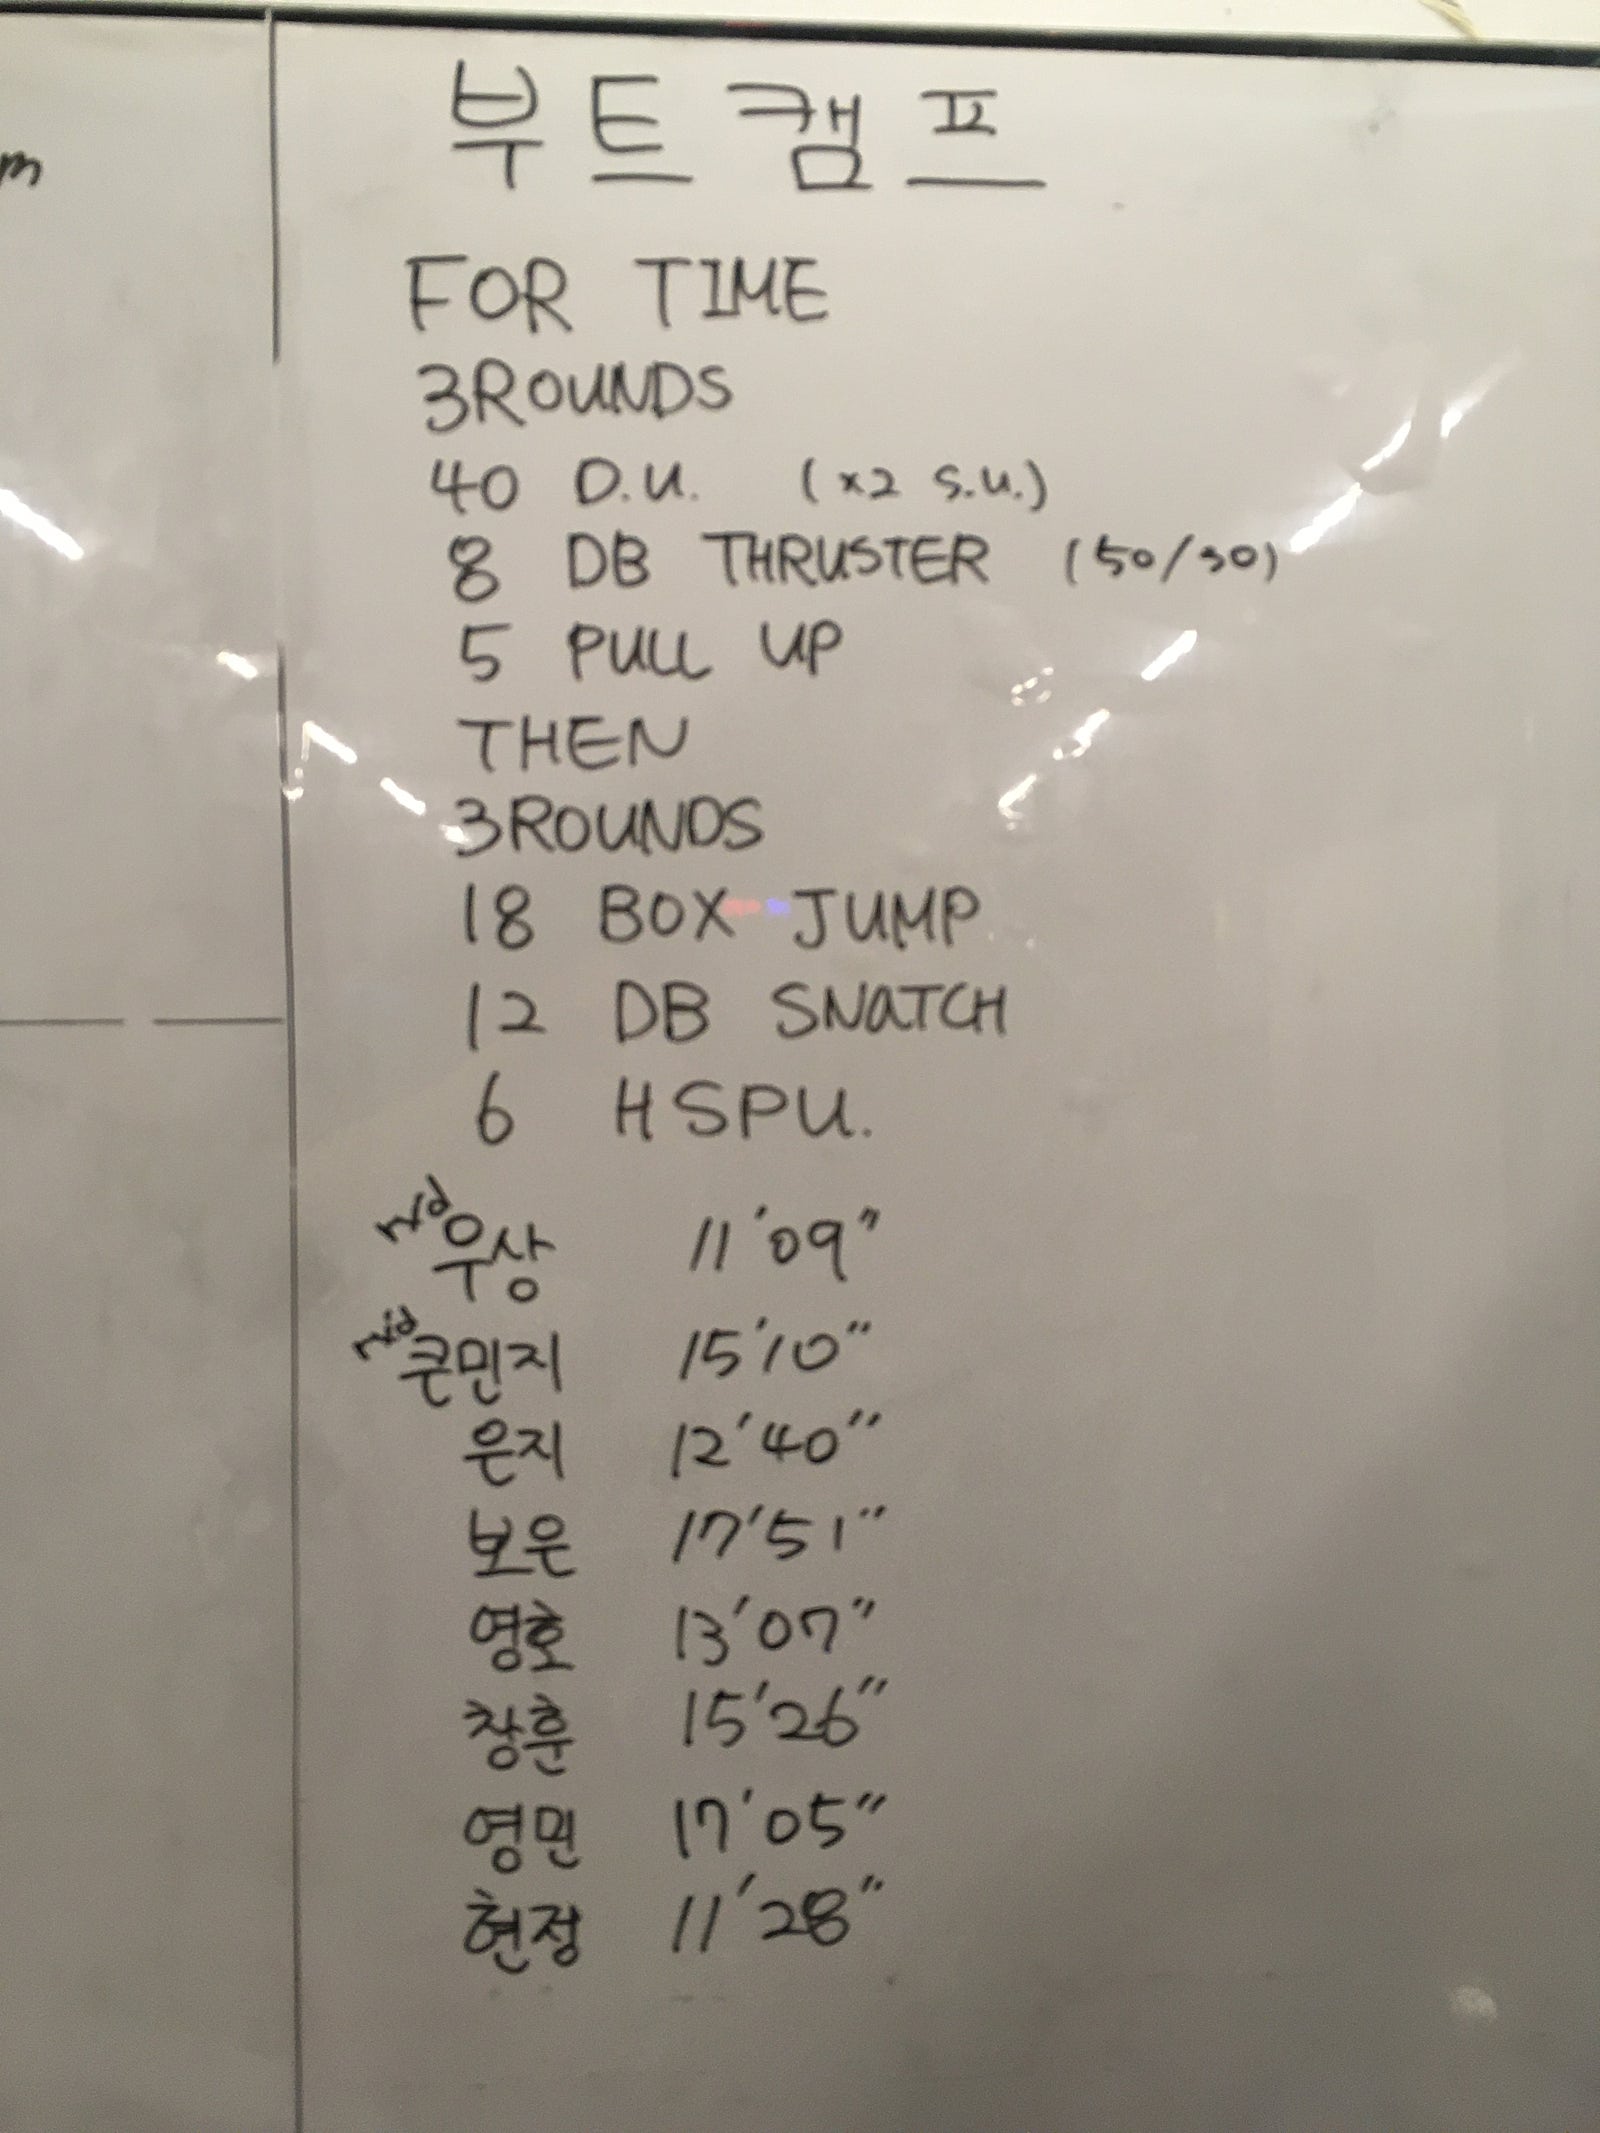 m
부트캠프
FOR TIME
3ROUNDS
40 D.U. (x2 S.U.)
8 DB THRUSTER (50/30)
5 PULL UP
THEN
3ROUNDS
18 BOX JUMP
12 DB SNATCH
6 HSPU.
우상 11'09"
큰민지 15'10"
은지 12'40"
보은 17'51"
영호 13'07"
창훈 15'26"
영민 17'05"
현정 11'28"